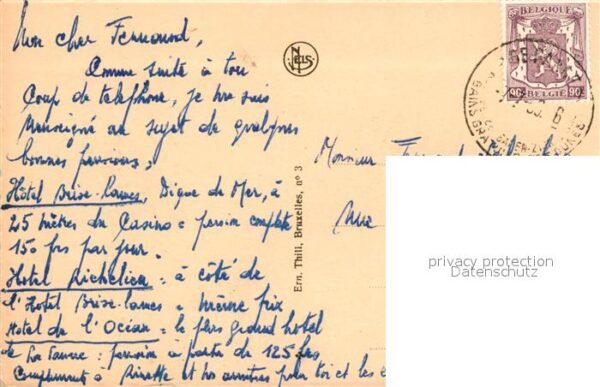 Mon cher Fernand,
Comme suite à ton
Coup de telephone, je me suis
renseigné au sujet de quelques
bonnes pensions,
Hôtel Brise-lames, Digue de Mer, à
25 mètres du Casino = pension complète
150 frs par jour.
Hotel Richelieu = à côté de
l'Hotel Brise-lames = même prix
Hotel de l'Océan = le plus grand hotel
de : pension à partir de 125 frs
Compliments à Ninette et nos amitiés pour toi et les
NELS
Ern. Thill, Bruxelles, nº 3
BELGIQUE
90c BELGIE 90c
Monsieur
Rue
privacy protection
Datenschutz